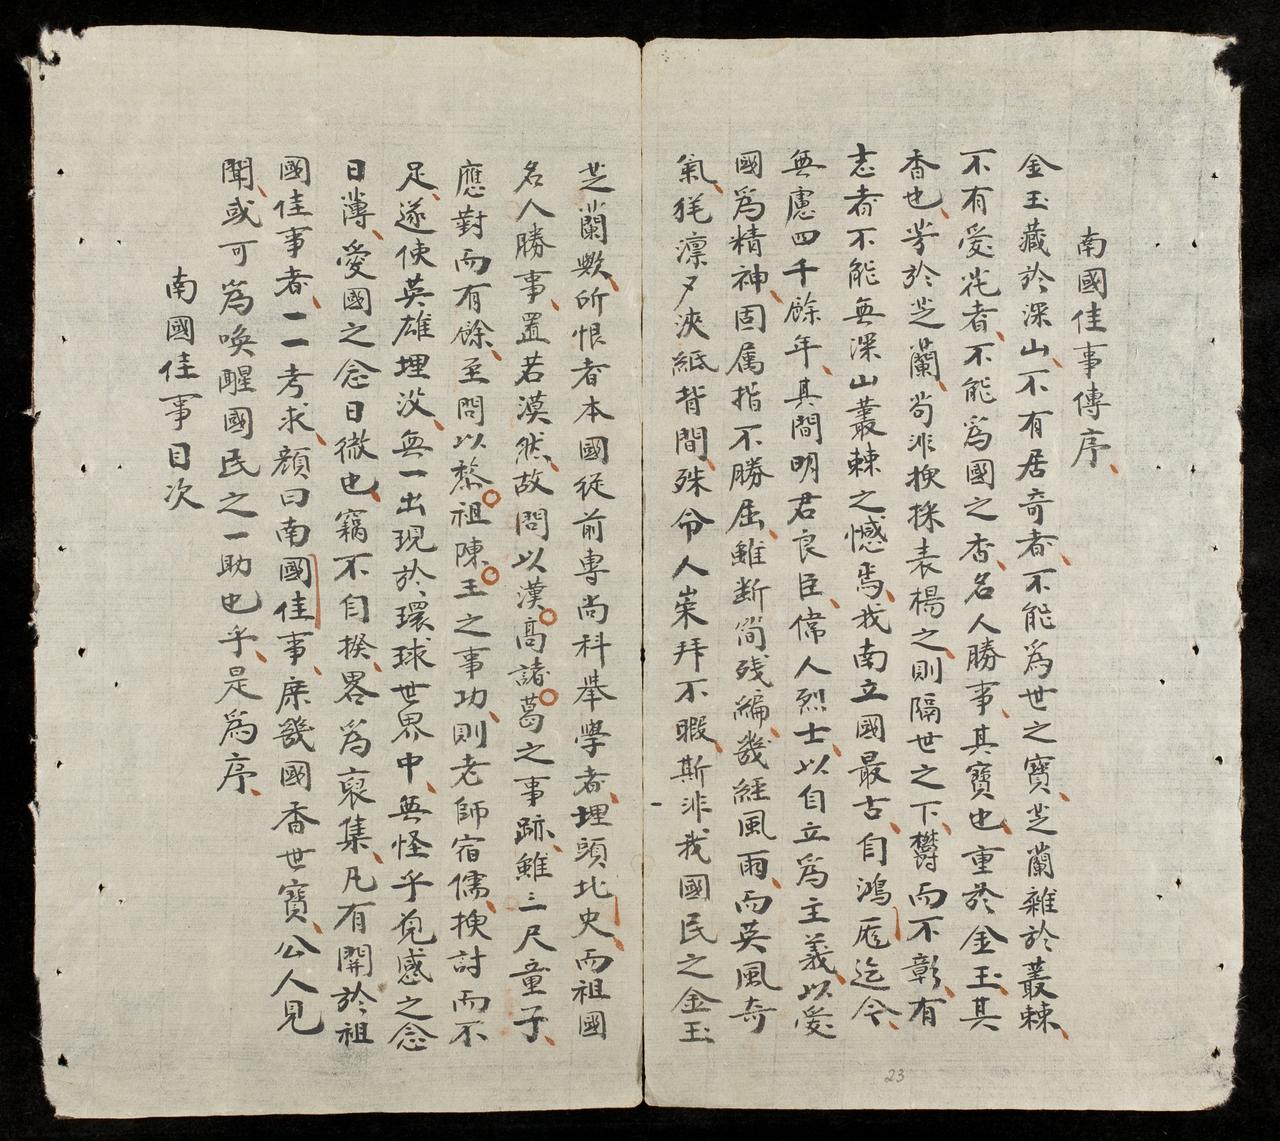 南國佳事傳序
金玉藏於深山不有居奇者不能爲世之寶芝蘭雜於叢棘
不有愛花者不能爲國之香名人勝事其寶也重於金玉其
香也芳於芝蘭苟非搜採表楊之則隔世之下欝而不彰有
志者不能無深山叢棘之憾焉我南立國最古自鴻厖迄今
無慮四千餘年其間明君良臣偉人烈士以自立爲主義以愛
國爲精神固属指不勝屈雖断简残編幾經風雨而英風奇
氣毣凛夕浹紙背間殊令人崇拜不暇斯非我國民之金玉
芝蘭歟所恨者本國從前專尚科舉學者埋頭北史而祖國
名人勝事置若漠然故問以漢高諸葛之事跡雖三尺童子
應對而有餘至問以黎祖陳王之事功則老師宿儒搜討而不
足遂使英雄埋没無一出現於環球世界中無怪乎觉感之念
日薄愛國之念日微也竊不自揆畧爲裒集凡有關於祖
國佳事者一一考求顔曰南國佳事庶幾國香世寶公人見
聞或可爲喚醒國民之一助也乎是爲序
南國佳事目次
23